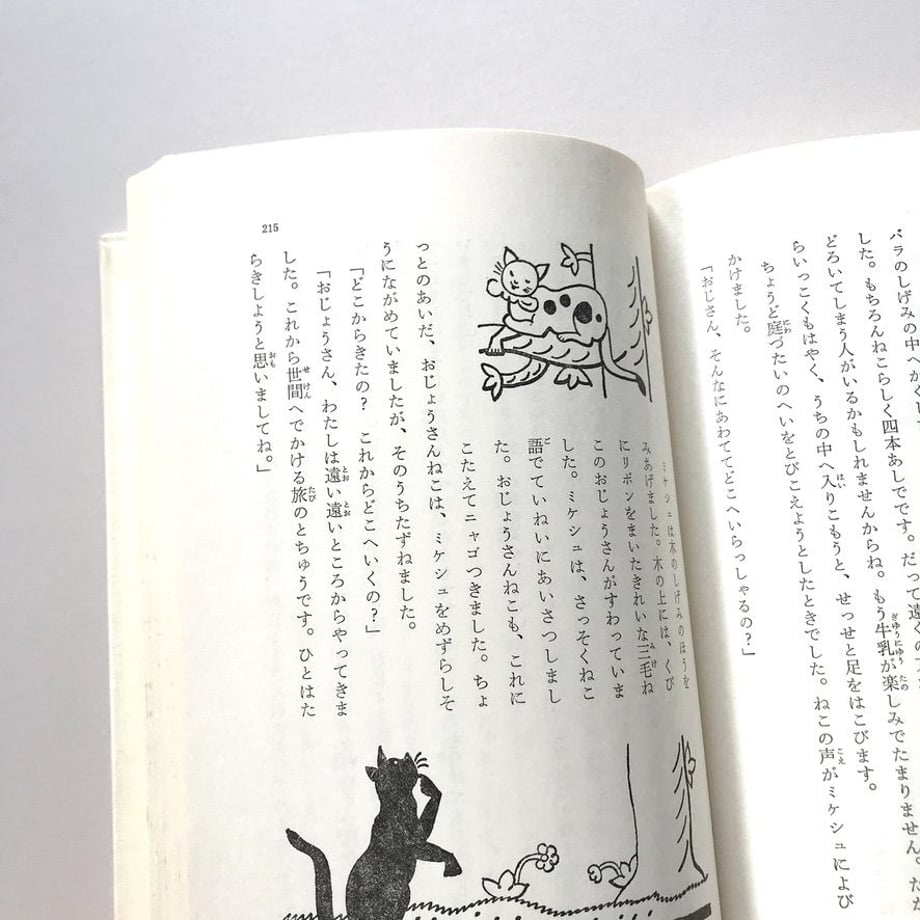 バラのしげみの中へかくし
した。もちろんねこらしく四本あしでです。だって遠くの
どろいてしまう人がいるかもしれませんからね。もう牛乳が楽しみでたまりません。だ
らいっこくもはやく、うちの中へ入りこもうと、せっせと足をはこびます。
ちょうど庭づたいのへいをとびこえようとしたときでした。ねこの声がミケシュによび
かけました。
「おじさん、そんなにあわててどこへいらっしゃるの？」
ミケシュは木のしげみのほうを
みあげました。木の上には、くび
にリボンをまいたきれいな三毛ね
このおじょうさんがすわっていま
した。ミケシュは、さっそくねこ
語でていねいにあいさつしまし
た。おじょうさんねこも、これに
こたえてニャゴつきました。ちょ
っとのあいだ、おじょうさんねこは、ミケシュをめずらしそ
うにながめていましたが、そのうちたずねました。
「どこからきたの？　これからどこへいくの？」
「おじょうさん、わたしは遠い遠いところからやってきま
した。これから世間へでかける旅のとちゅうです。ひとはた
らきしようと思いましてね。」
215